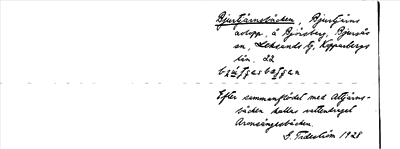 Bjurtjärnsbäcken, Bjurtjärns
avlopp, å Björberg, Bjursås
sn, Leksands tg, Kopparbergs
län. 22
Efter sammanflödet med Alltjärns-
bäcken kallas vattendraget
Armsängesbäcken.
G. Tideström 1928